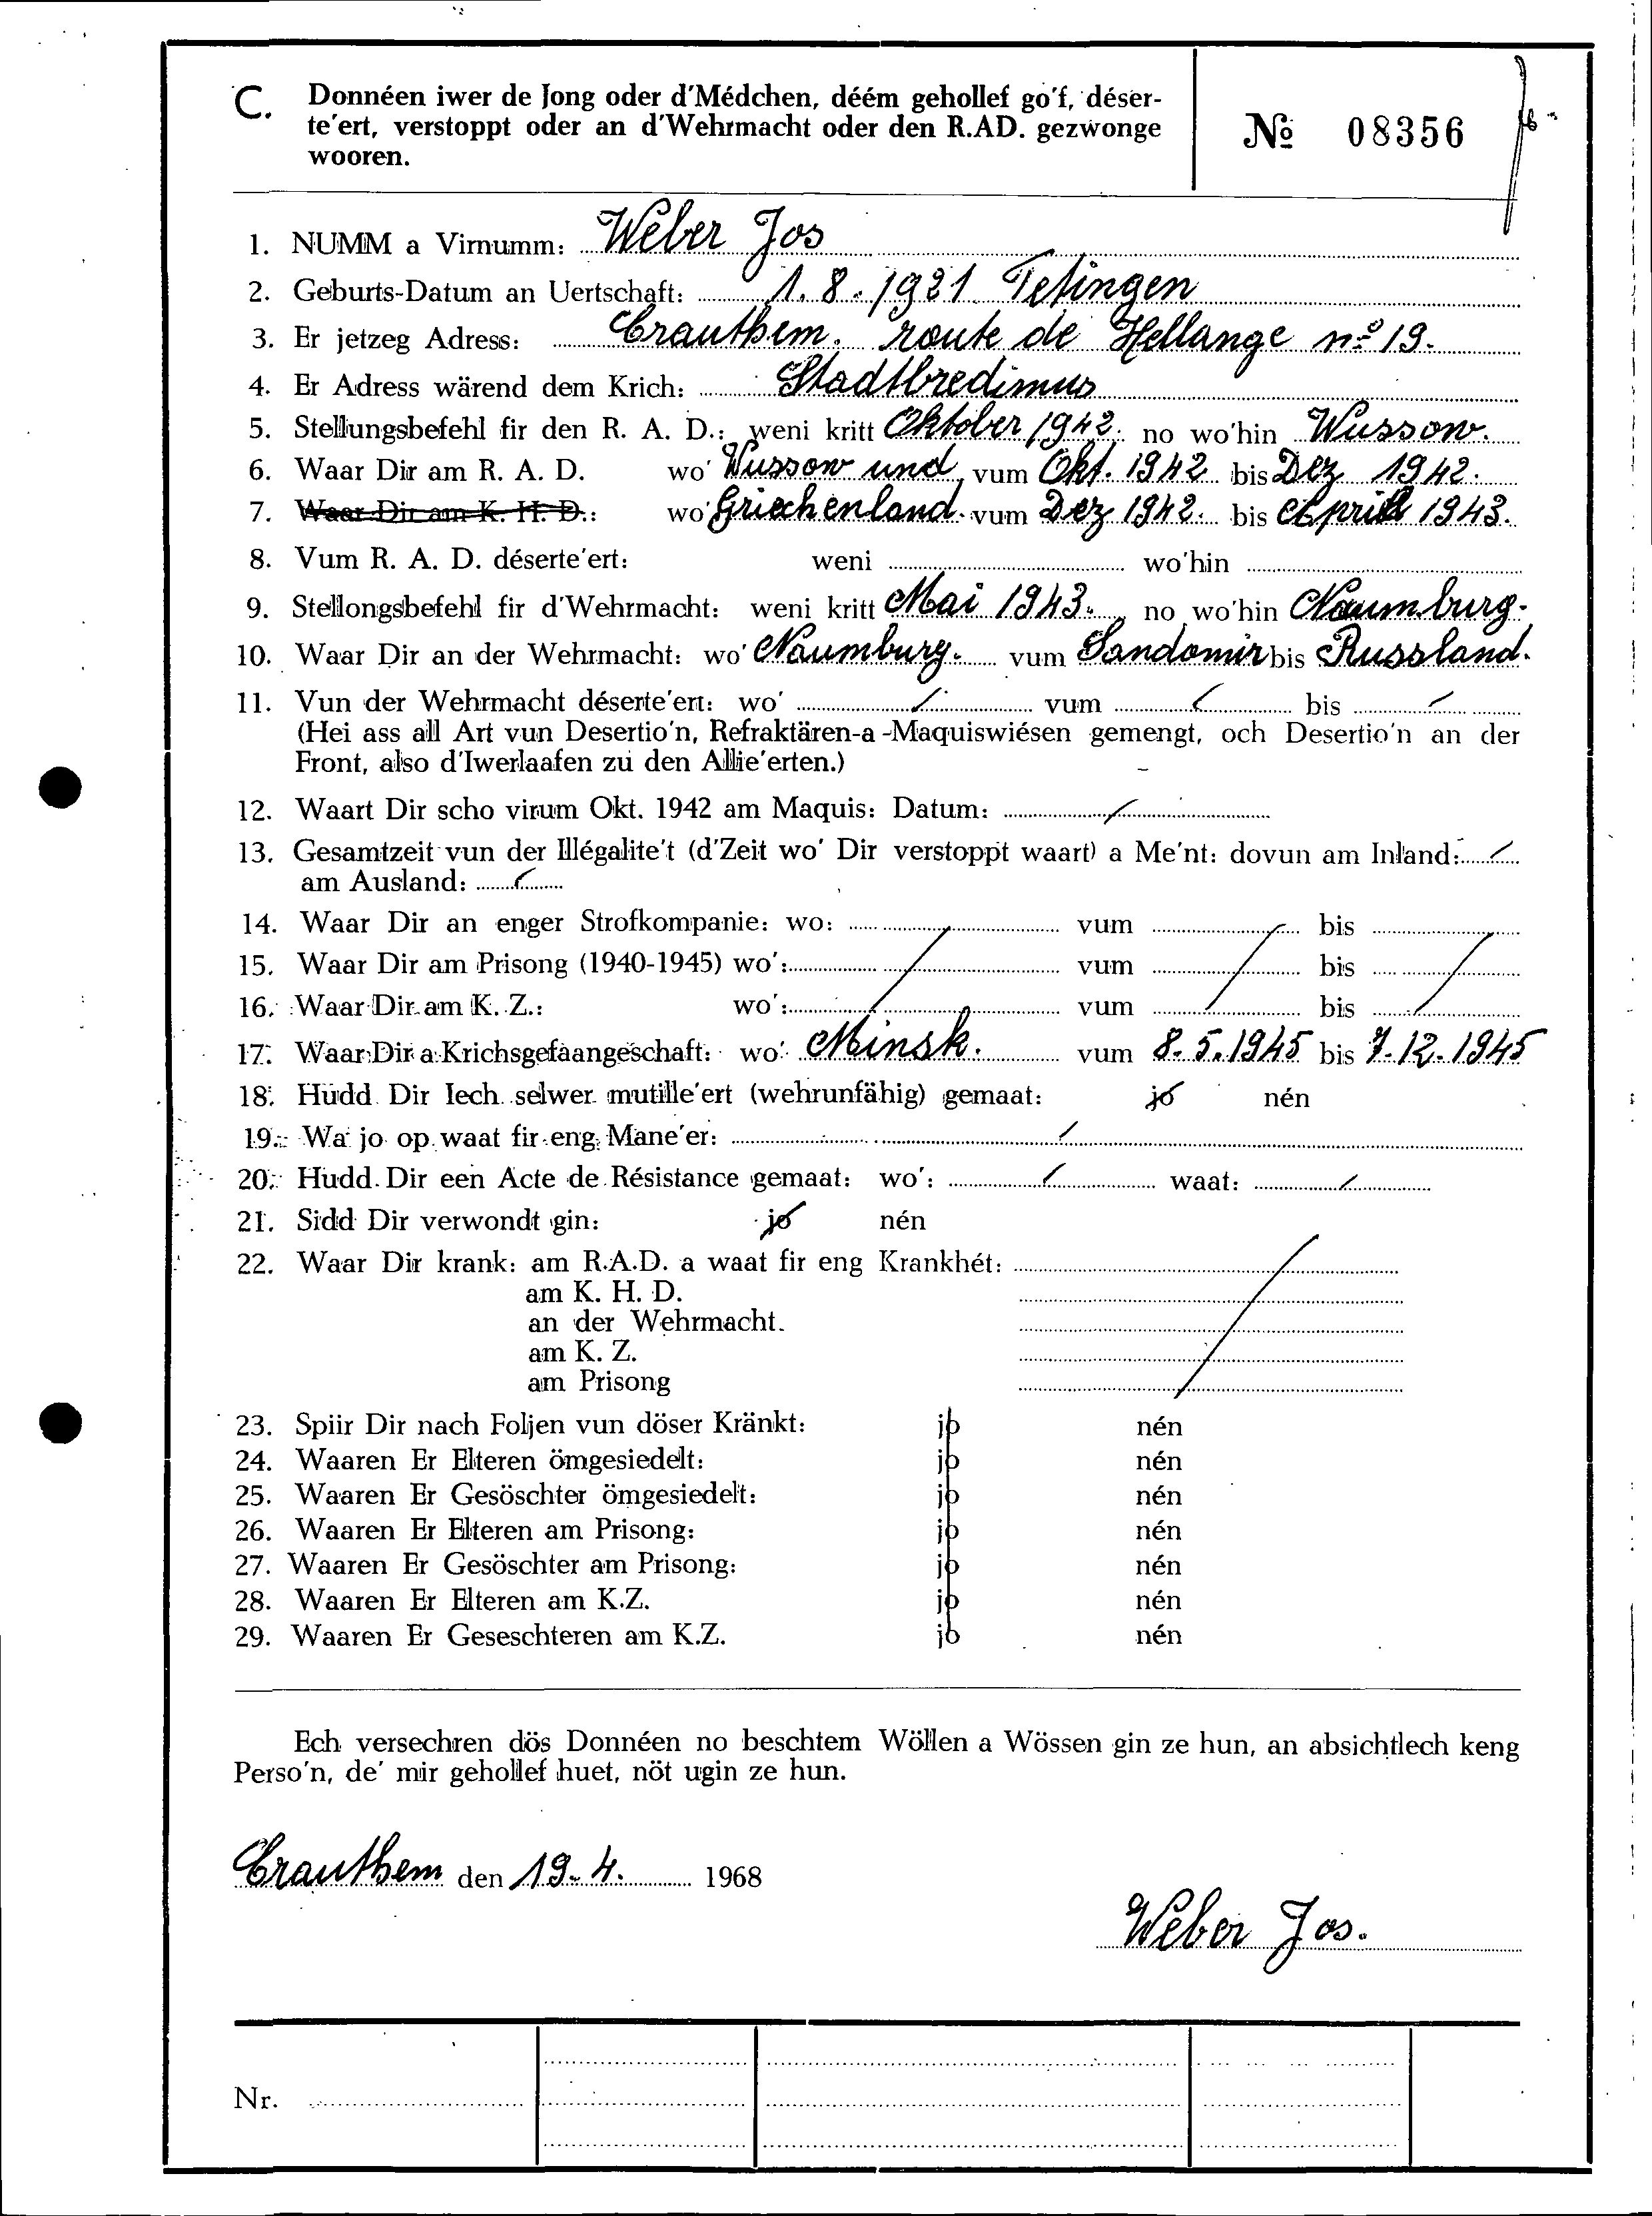 C. Donnéen iwer de Jong oder d'Médchen, déém gehollef go'f, déser-
te'ert, verstoppt oder an d'Wehrmacht oder den R.AD. gezwonge
wooren.
№ 08356
1. NUMM a Virnumm: Weber Jos
2. Geburts-Datum an Uertschaft: 1. 8. 1921 Tetingen
3. Er jetzeg Adress: Crauthem. route de Hellange nº 19.
4. Er Adress wärend dem Krich: Stadtbredimus
5. Stellungsbefehl fir den R. A. D.: weni kritt Oktober 1942. no wo'hin Wussow.
6. Waar Dir am R. A. D. wo' Wussow und vum Okt. 1942 bis Dez 1942.
7. Waar Dir am K. H. D.: wo' Griechenland. vum Dez 1942. bis April 1943.
8. Vum R. A. D. déserte'ert: weni wo'hin
9. Stellongsbefehl fir d'Wehrmacht: weni kritt Mai 1943. no wo'hin Naumburg.
10. Waar Dir an der Wehrmacht: wo' Naumburg. vum Sandomir bis Russland.
11. Vun der Wehrmacht déserte'ert: wo' / vum / bis /
(Hei ass all Art vun Desertio'n, Refraktären-a-Maquiswiésen gemengt, och Desertio'n an der
Front, also d'Iwerlaafen zu den Allie'erten.)
12. Waart Dir scho virum Okt. 1942 am Maquis: Datum: /
13. Gesamtzeit vun der Illégalite't (d'Zeit wo' Dir verstoppt waart) a Me'nt: dovun am Inland: /
am Ausland: /
14. Waar Dir an enger Strofkompanie: wo: vum bis
15. Waar Dir am Prisong (1940-1945) wo': vum bis
16. Waar Dir am K. Z.: wo': vum bis
17. Waar Dir a Krichsgefaangeschaft: wo' Minsk. vum 8. 5. 1945 bis 7. 12. 1945
18. Hudd Dir Iech selwer mutille'ert (wehrunfähig) gemaat: jo nén
19. Wa jo op waat fir eng Mane'er: /
20. Hudd Dir een Acte de Résistance gemaat: wo': / waat: /
21. Sidd Dir verwondt gin: jo nén
22. Waar Dir krank: am R.A.D. a waat fir eng Krankhét:
am K. H. D.
an der Wehrmacht.
am K. Z.
am Prisong
23. Spiir Dir nach Foljen vun döser Kränkt: jo nén
24. Waaren Er Elteren ömgesiedelt: jo nén
25. Waaren Er Gesöschter ömgesiedelt: jo nén
26. Waaren Er Elteren am Prisong: jo nén
27. Waaren Er Gesöschter am Prisong: jo nén
28. Waaren Er Elteren am K.Z. jo nén
29. Waaren Er Geseschteren am K.Z. jo nén
Ech versechren dös Donnéen no beschtem Wöllen a Wössen gin ze hun, an absichtlech keng
Perso'n, de' mir gehollef huet, nöt ugin ze hun.
Crauthem den 19. 4. 1968
Weber Jos.
Nr.